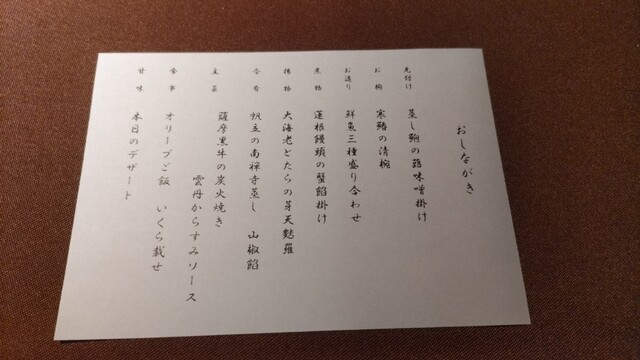 おしながき
先付け 蒸し鮑の蕗味噌掛け
お椀 寒鰆の清椀
お造り 鮮魚三種盛り合わせ
煮物 蓮根饅頭の蟹餡掛け
揚物 大海老とたらの芽天麩羅
合肴 帆立の南禅寺蒸し 山椒餡
主菜 薩摩黒牛の炭火焼き
雲丹からすみソース
食事 オリーブご飯 いくら載せ
甘味 本日のデザート